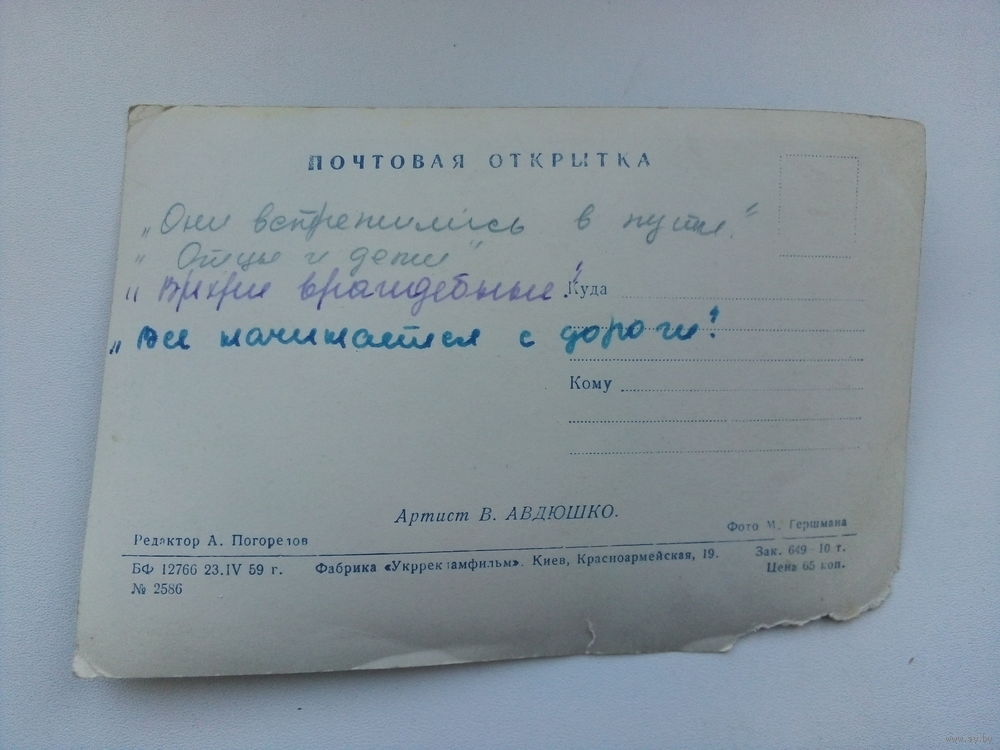 ПОЧТОВАЯ ОТКРЫТКА
„Они встретились в пути."
„Отцы и дети"
„Вихри враждебные."
Куда
„Все начинается с дороги"
Кому
Артист В. АВДЮШКО.
Фото М. Гершмана
Редактор А. Погорелов
БФ 12766 23.IV 59 г. Фабрика «Укррекламфильм». Киев, Красноармейская, 19. Зак. 649—10 т.
№ 2586 Цена 65 коп.
www.ay.by